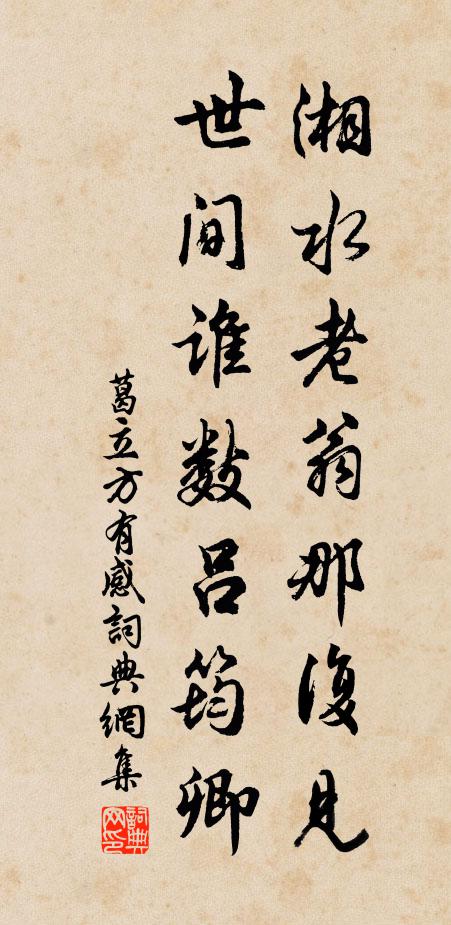 湘水老翁那復見
世间誰數呂筠卿
葛立方有感詞典網集
詞典网印